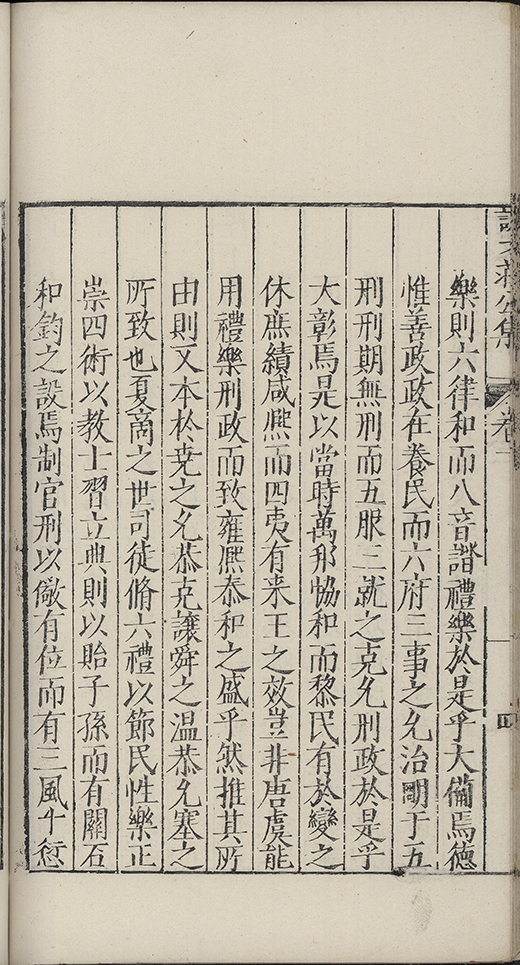 樂則六律和而八音諧禮樂於是乎大備焉德
惟善政政在養民而六府三事之允治明于五
刑刑期無刑而五服三就之克允刑政於是乎
大彰焉是以當時萬邦恊和而黎民有於變之
休庶績咸熈而四夷有来王之效豈非唐虞能
用禮樂刑政而致雍熈泰和之盛乎然推其所
由則又本於堯之允恭克讓舜之温恭允塞之
所致也夏商之世司徒脩六禮以節民性樂正
崇四術以教士習立典則以貽子孫而有關石
和鈞之設焉制官刑以儆有位而有三風十愆
公集
卷
四